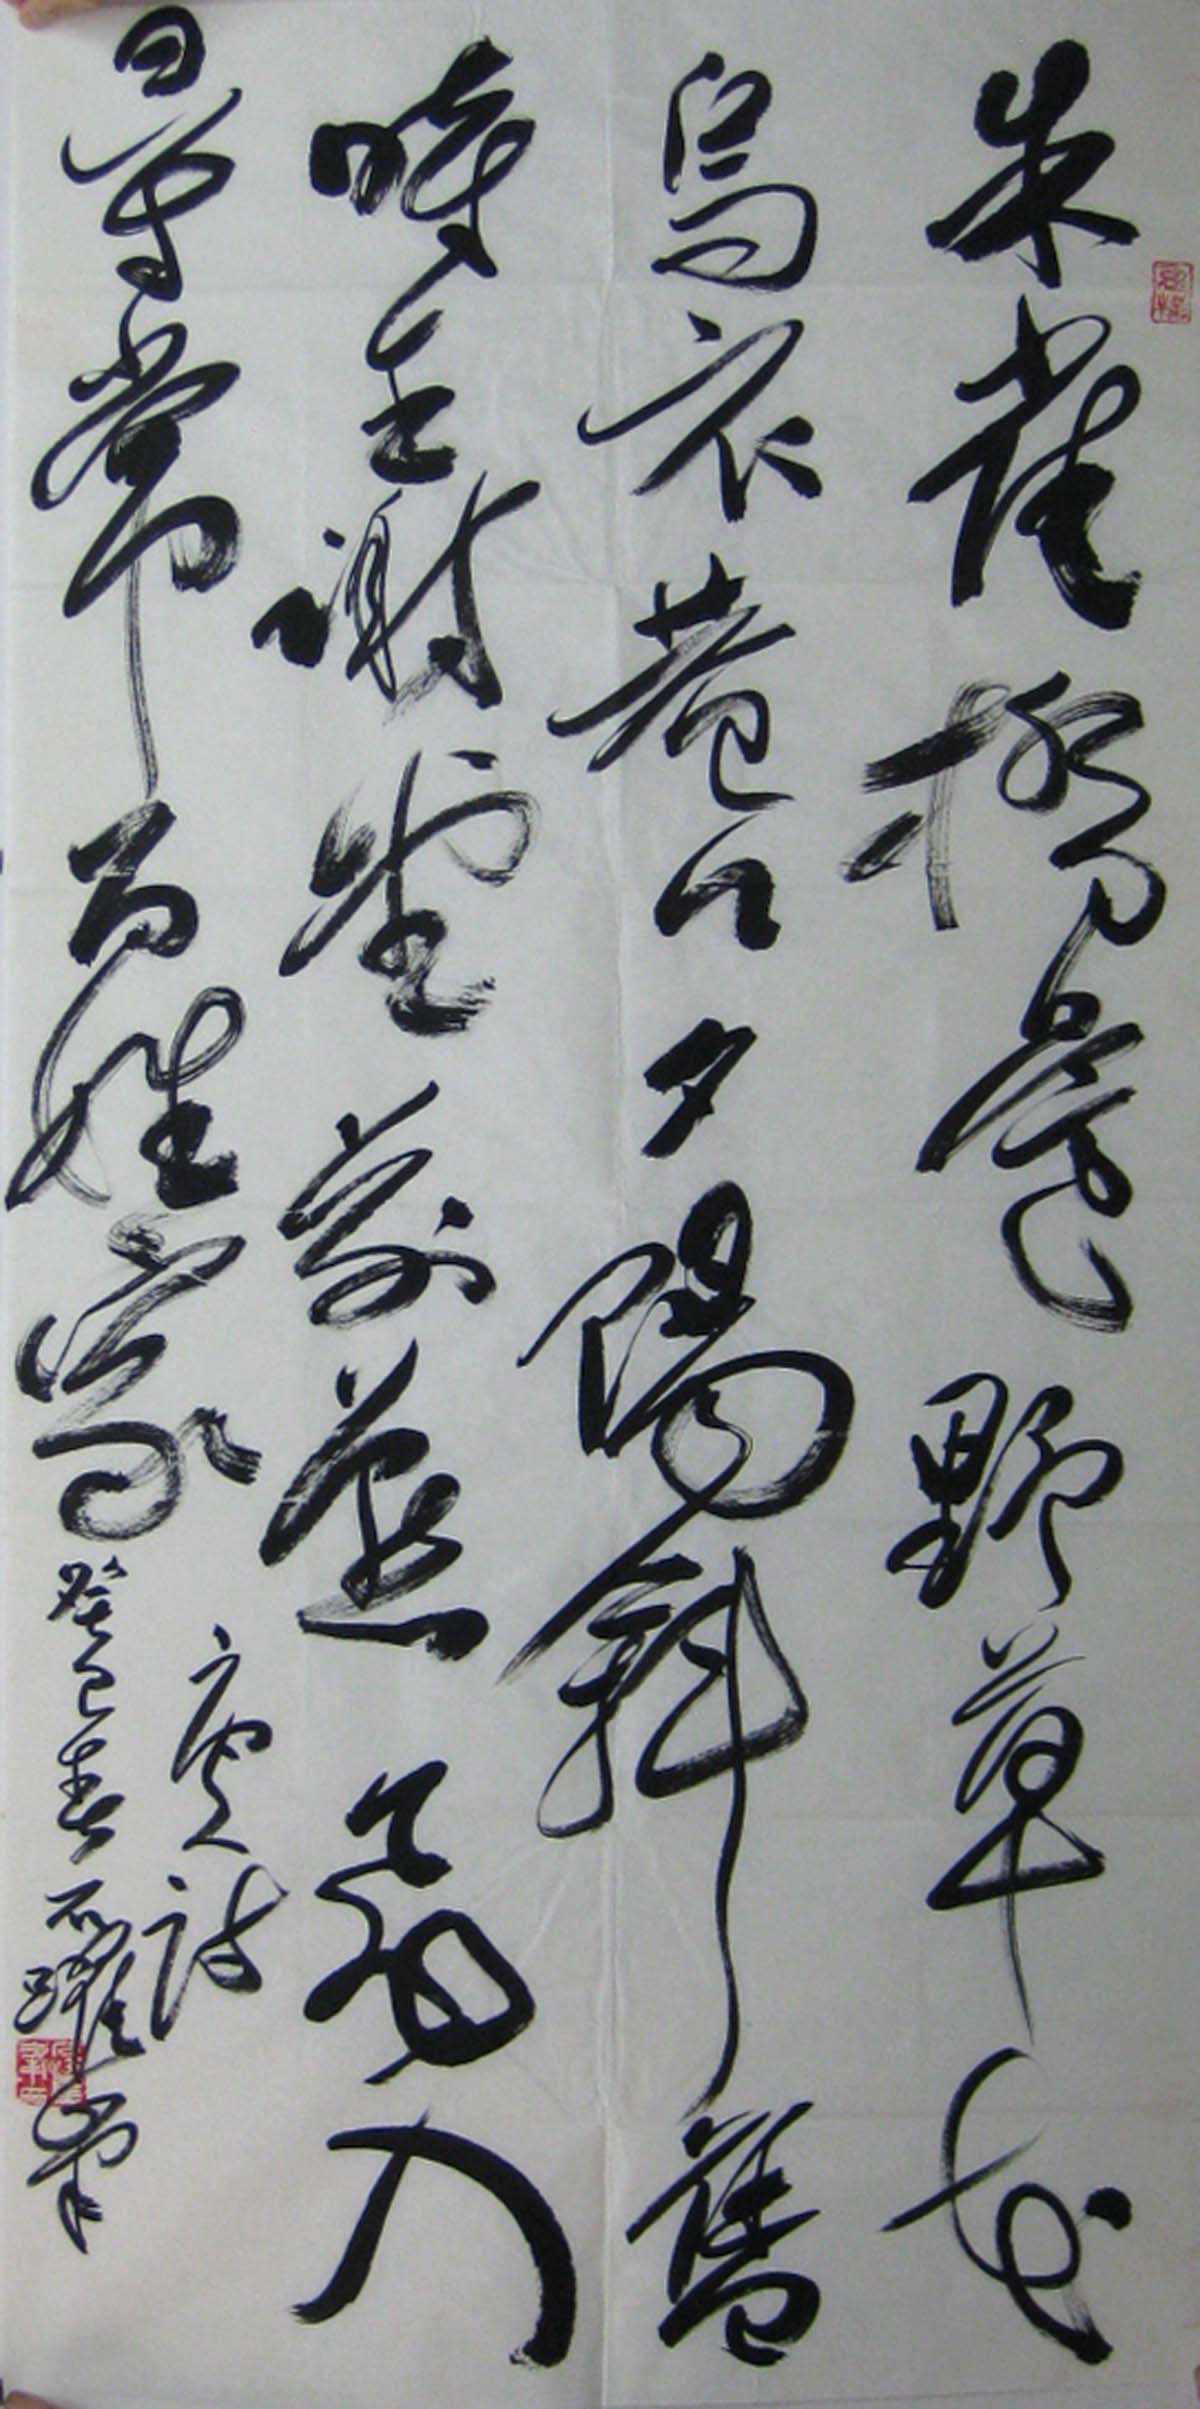 朱雀橋邊野草花
烏衣巷口夕陽斜舊
時王謝堂前燕飛入
尋常百姓家
唐人詩
癸巳春石躍筆